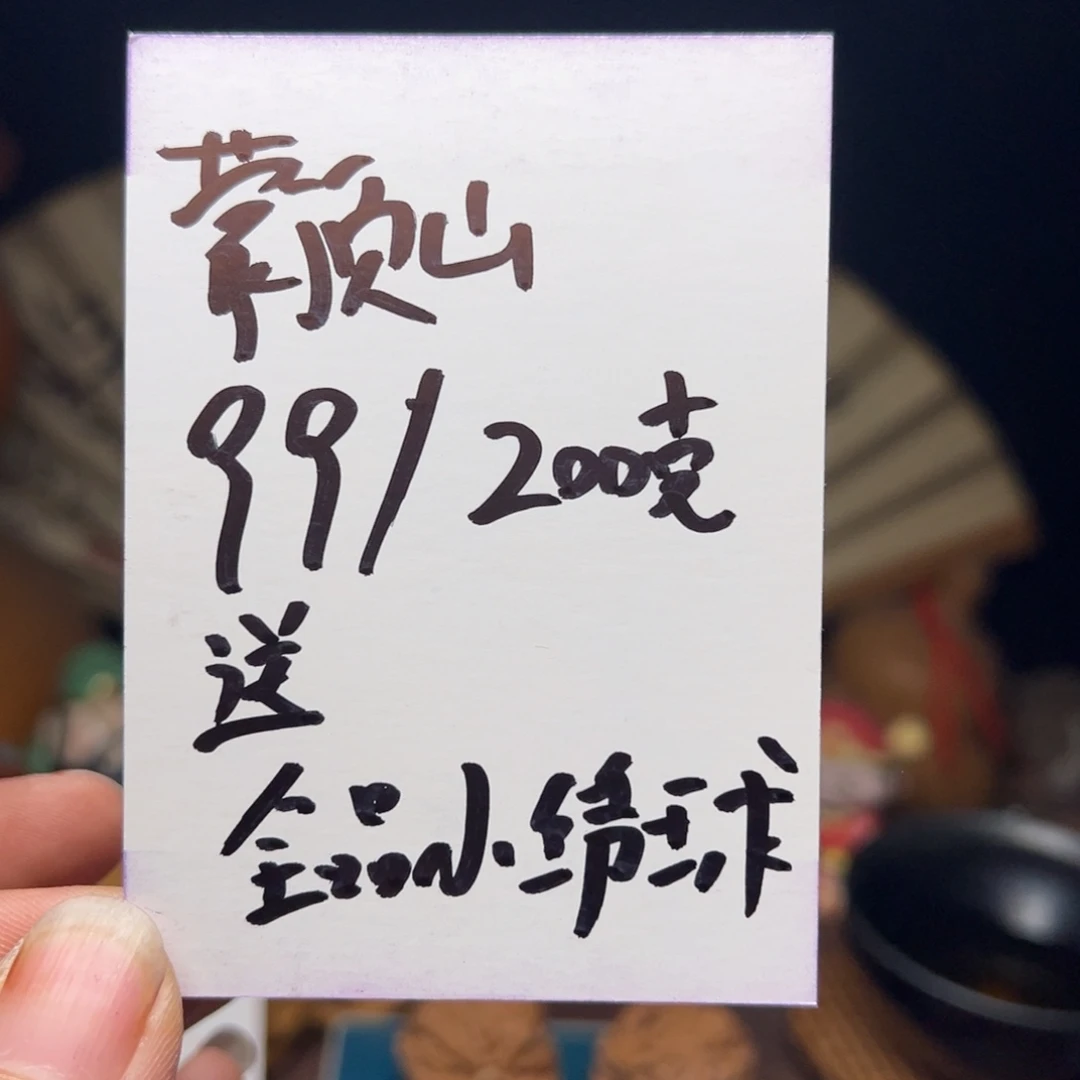 蒙顶山
99/200克
送
全品小绣球